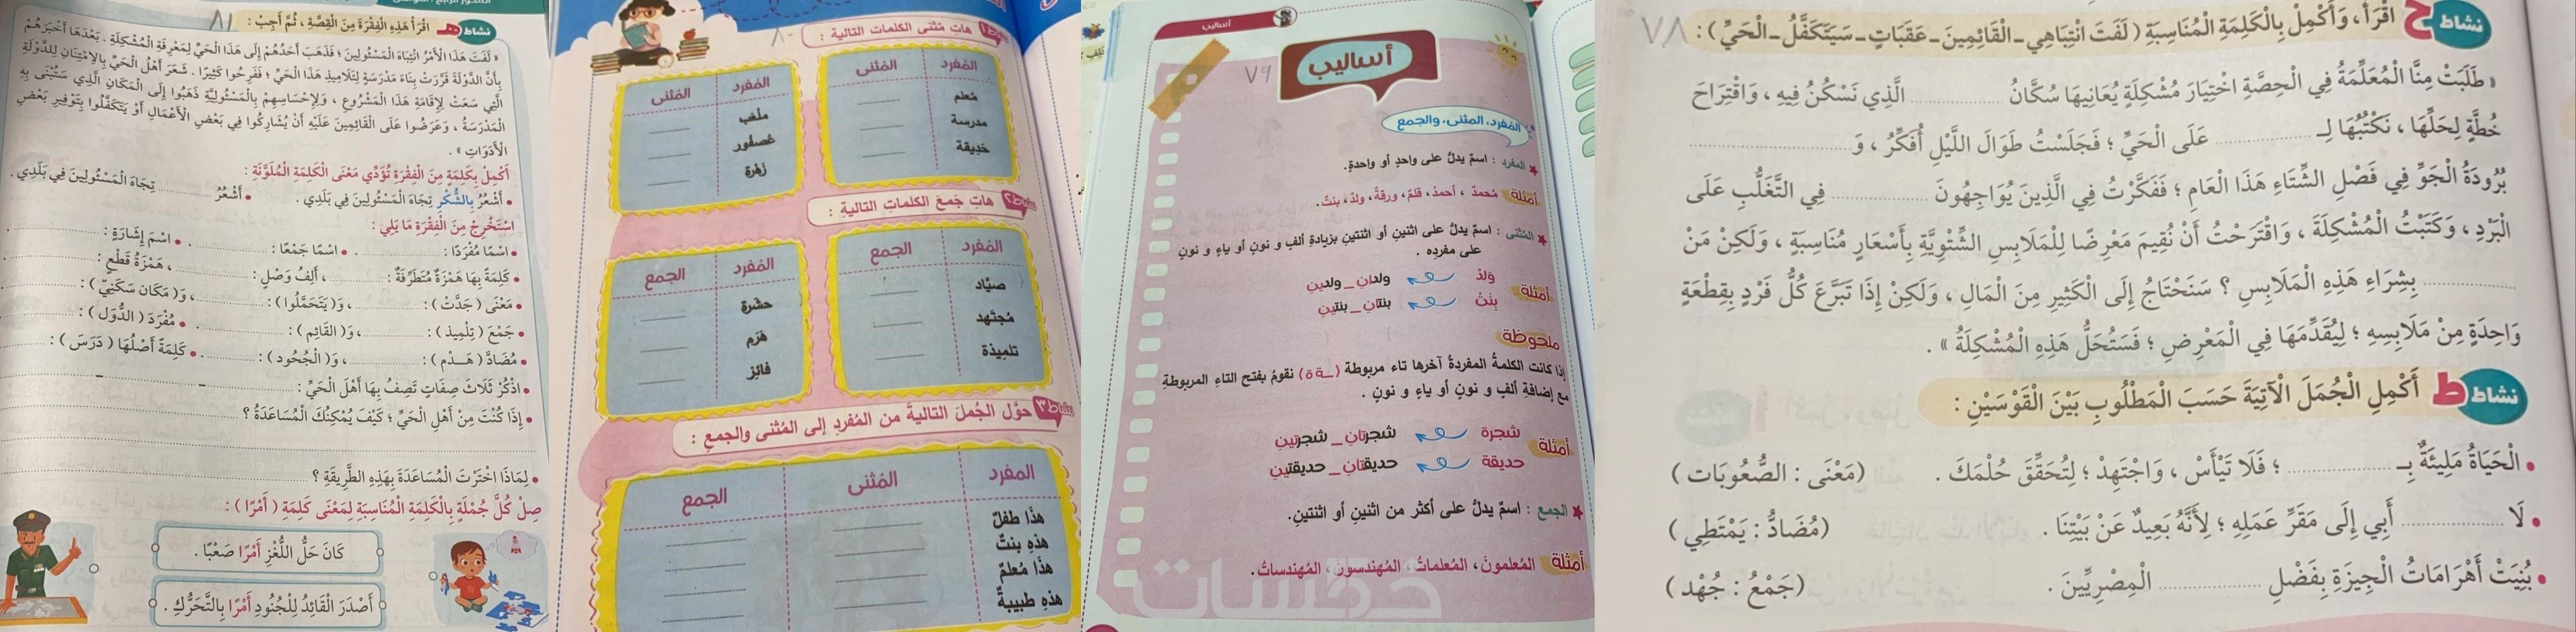 نشاط ح اقْرَأْ، وَأَكْمِلْ بِالْكَلِمَةِ الْمُنَاسِبَةِ (لَفَتَ انْتِبَاهِي - الْقَائِمِينَ - عَقَبَاتٍ - سَيَتَكَفَّلُ - الْحَيِّ) : ٧٨
« طَلَبَتْ مِنَّا الْمُعَلِّمَةُ فِي الْحِصَّةِ اخْتِيَارَ مُشْكِلَةٍ يُعَانِيهَا سُكَّانُ .......... الَّذِي نَسْكُنُ فِيهِ، وَاقْتِرَاحَ
خُطَّةٍ لِحَلِّهَا، نَكْتُبُهَا لِـ .......... عَلَى الْحَيِّ؛ فَجَلَسْتُ طَوَالَ اللَّيْلِ أُفَكِّرُ، وَ ..........
بُرُودَةُ الْجَوِّ فِي فَصْلِ الشِّتَاءِ هَذَا الْعَامِ؛ فَفَكَّرْتُ فِي الَّذِينَ يُوَاجِهُونَ .......... فِي التَّغَلُّبِ عَلَى
الْبَرْدِ، وَكَتَبْتُ الْمُشْكِلَةَ، وَاقْتَرَحْتُ أَنْ نُقِيمَ مَعْرِضًا لِلْمَلَابِسِ الشِّتْوِيَّةِ بِأَسْعَارٍ مُنَاسِبَةٍ، وَلَكِنْ مَنْ
.......... بِشِرَاءِ هَذِهِ الْمَلَابِسِ؟ سَنَحْتَاجُ إِلَى الْكَثِيرِ مِنَ الْمَالِ، وَلَكِنْ إِذَا تَبَرَّعَ كُلُّ فَرْدٍ بِقِطْعَةٍ
وَاحِدَةٍ مِنْ مَلَابِسِهِ؛ لِيُقَدِّمَهَا فِي الْمَعْرِضِ؛ فَسَتُحَلُّ هَذِهِ الْمُشْكِلَةُ ».
نشاط ط أَكْمِلِ الْجُمَلَ الْآتِيَةَ حَسَبَ الْمَطْلُوبِ بَيْنَ الْقَوْسَيْنِ :
• الْحَيَاةُ مَلِيئَةٌ بِـ .......... ؛ فَلَا تَيْأَسْ، وَاجْتَهِدْ؛ لِتُحَقِّقَ حُلْمَكَ. (مَعْنَى : الصُّعُوبَات)
• لَا .......... أَبِي إِلَى مَقَرِّ عَمَلِهِ؛ لِأَنَّهُ بَعِيدٌ عَنْ بَيْتِنَا. (مُضَادُّ : يَمْتَطِي)
• بُنِيَتْ أَهْرَامَاتُ الْجِيزَةِ بِفَضْلِ .......... الْمِصْرِيِّينَ. (جَمْعُ : جُهْد)
أساليب
أساليب
٧٩
المُفرد، المثنى، والجمع
★ المفرد : اسمٌ يدلُّ على واحدٍ أو واحدةٍ.
أمثلة مُحمدٌ، أحمدُ، قلمٌ، ورقةٌ، ولدٌ، بنتٌ.
★ المُثنى : اسمٌ يدلُّ على اثنينِ أو اثنتينِ بزيادةِ ألفٍ و نونٍ أو ياءٍ و نونٍ
على مفرده .
أمثلة وَلدٌ ولدانِ _ ولدينِ
بِنتٌ بنتانِ _ بنتينِ
ملحوظة
إذا كانت الكلمةُ المفردةُ آخرها تاء مربوطة (ـة ة) نقومُ بفتح التاءِ المربوطةِ
مع إضافةِ ألفٍ و نونٍ أو ياءٍ و نونٍ .
أمثلة شجرة شجرتانِ _ شجرتينِ
حديقة حديقتانِ _ حديقتينِ
★ الجمع : اسمٌ يدلُّ على أكثر من اثنينِ أو اثنتينِ.
أمثلة المُعلمونَ، المُعلماتُ، المُهندسونَ، المُهندساتُ.
نشاط ١ هاتِ مُثنى الكلمات التالية : ٨٠
المُفرد المُثنى
مُعلم
مدرسة
حَديقة
المُفرد المُثنى
ملعَب
عُصفُور
زَهْرة
نشاط ٢ هاتِ جَمعَ الكلماتِ التاليةِ :
المُفرد الجمع
صيّاد
مُجتَهد
تلميذة
المُفرد الجمع
حشَرة
هَرَم
فائِز
نشاط ٣ حوّل الجُملَ التاليةَ من المُفردِ إلى المُثنى والجمعِ :
المفرد المُثنى الجمع
هذَا طفلٌ
هذهِ بنتٌ
هذَا مُعلمٌ
هذهِ طبيبةٌ
نشاط هـ اقْرَأْ هَذِهِ الْفِقْرَةَ مِنَ الْقِصَّةِ، ثُمَّ أَجِبْ : ٨١
« لَفَتَ هَذَا الْأَمْرُ انْتِبَاهَ الْمَسْئُولِينَ؛ فَذَهَبَ أَحَدُهُمْ إِلَى هَذَا الْحَيِّ لِمَعْرِفَةِ الْمُشْكِلَةِ. بَعْدَهَا أَخْبَرَهُمْ
بِأَنَّ الدَّوْلَةَ قَرَّرَتْ بِنَاءَ مَدْرَسَةٍ لِتَلَامِيذِ هَذَا الْحَيِّ؛ فَفَرِحُوا كَثِيرًا. شَعَرَ أَهْلُ الْحَيِّ بِالِامْتِنَانِ لِلدَّوْلَةِ
الَّتِي سَعَتْ لِإِقَامَةِ هَذَا الْمَشْرُوعِ، وَلِإِحْسَاسِهِمْ بِالْمَسْئُولِيَّةِ ذَهَبُوا إِلَى الْمَكَانِ الَّذِي سَتُبْنَى بِهِ
الْمَدْرَسَةُ، وَعَرَضُوا عَلَى الْقَائِمِينَ عَلَيْهِ أَنْ يُشَارِكُوا فِي بَعْضِ الْأَعْمَالِ أَوْ يَتَكَفَّلُوا بِتَوْفِيرِ بَعْضِ
الْأَدَوَاتِ ».
أَكْمِلْ بِكَلِمَةٍ مِنَ الْفِقْرَةِ تُؤَدِّي مَعْنَى الْكَلِمَةِ الْمُلَوَّنَةِ :
• أَشْعُرُ بِالشُّكْرِ تِجَاهَ الْمَسْئُولِينَ فِي بَلَدِي. • أَشْعُرُ .......... تِجَاهَ الْمَسْئُولِينَ فِي بَلَدِي.
اسْتَخْرِجْ مِنَ الْفِقْرَةِ مَا يَلِي :
• اسْمًا مُفْرَدًا : .......... • اسْمًا جَمْعًا : .......... • اسْمَ إِشَارَةٍ : ..........
• كَلِمَةً بِهَا هَمْزَةٌ مُتَطَرِّفَةٌ : .......... ، أَلِفُ وَصْلٍ : .......... ، هَمْزَةُ قَطْعٍ : ..........
• مَعْنَى (جَدَّتْ) : .......... ، وَ(يَتَحَمَّلُوا) : .......... ، وَ(مَكَان سَكَنِيّ) : ..........
• جَمْعَ (تِلْمِيذ) : .......... ، وَ(الْقَائِم) : .......... • مُفْرَدَ (الدُّوَل) : ..........
• مُضَادَّ (هَدْم) : .......... ، وَ(الْجُحُود) : .......... • كَلِمَةً أَصْلُهَا (دَرَسَ) : ..........
• اذْكُرْ ثَلَاثَ صِفَاتٍ تَصِفُ بِهَا أَهْلَ الْحَيِّ :
• إِذَا كُنْتَ مِنْ أَهْلِ الْحَيِّ؛ كَيْفَ يُمْكِنُكَ الْمُسَاعَدَةُ؟
• لِمَاذَا اخْتَرْتَ الْمُسَاعَدَةَ بِهَذِهِ الطَّرِيقَةِ؟
صِلْ كُلَّ جُمْلَةٍ بِالْكَلِمَةِ الْمُنَاسِبَةِ لِمَعْنَى كَلِمَةِ (أَمْرًا) :
كَانَ حَلُّ اللُّغْزِ أَمْرًا صَعْبًا.
أَصْدَرَ الْقَائِدُ لِلْجُنُودِ أَمْرًا بِالتَّحَرُّكِ.